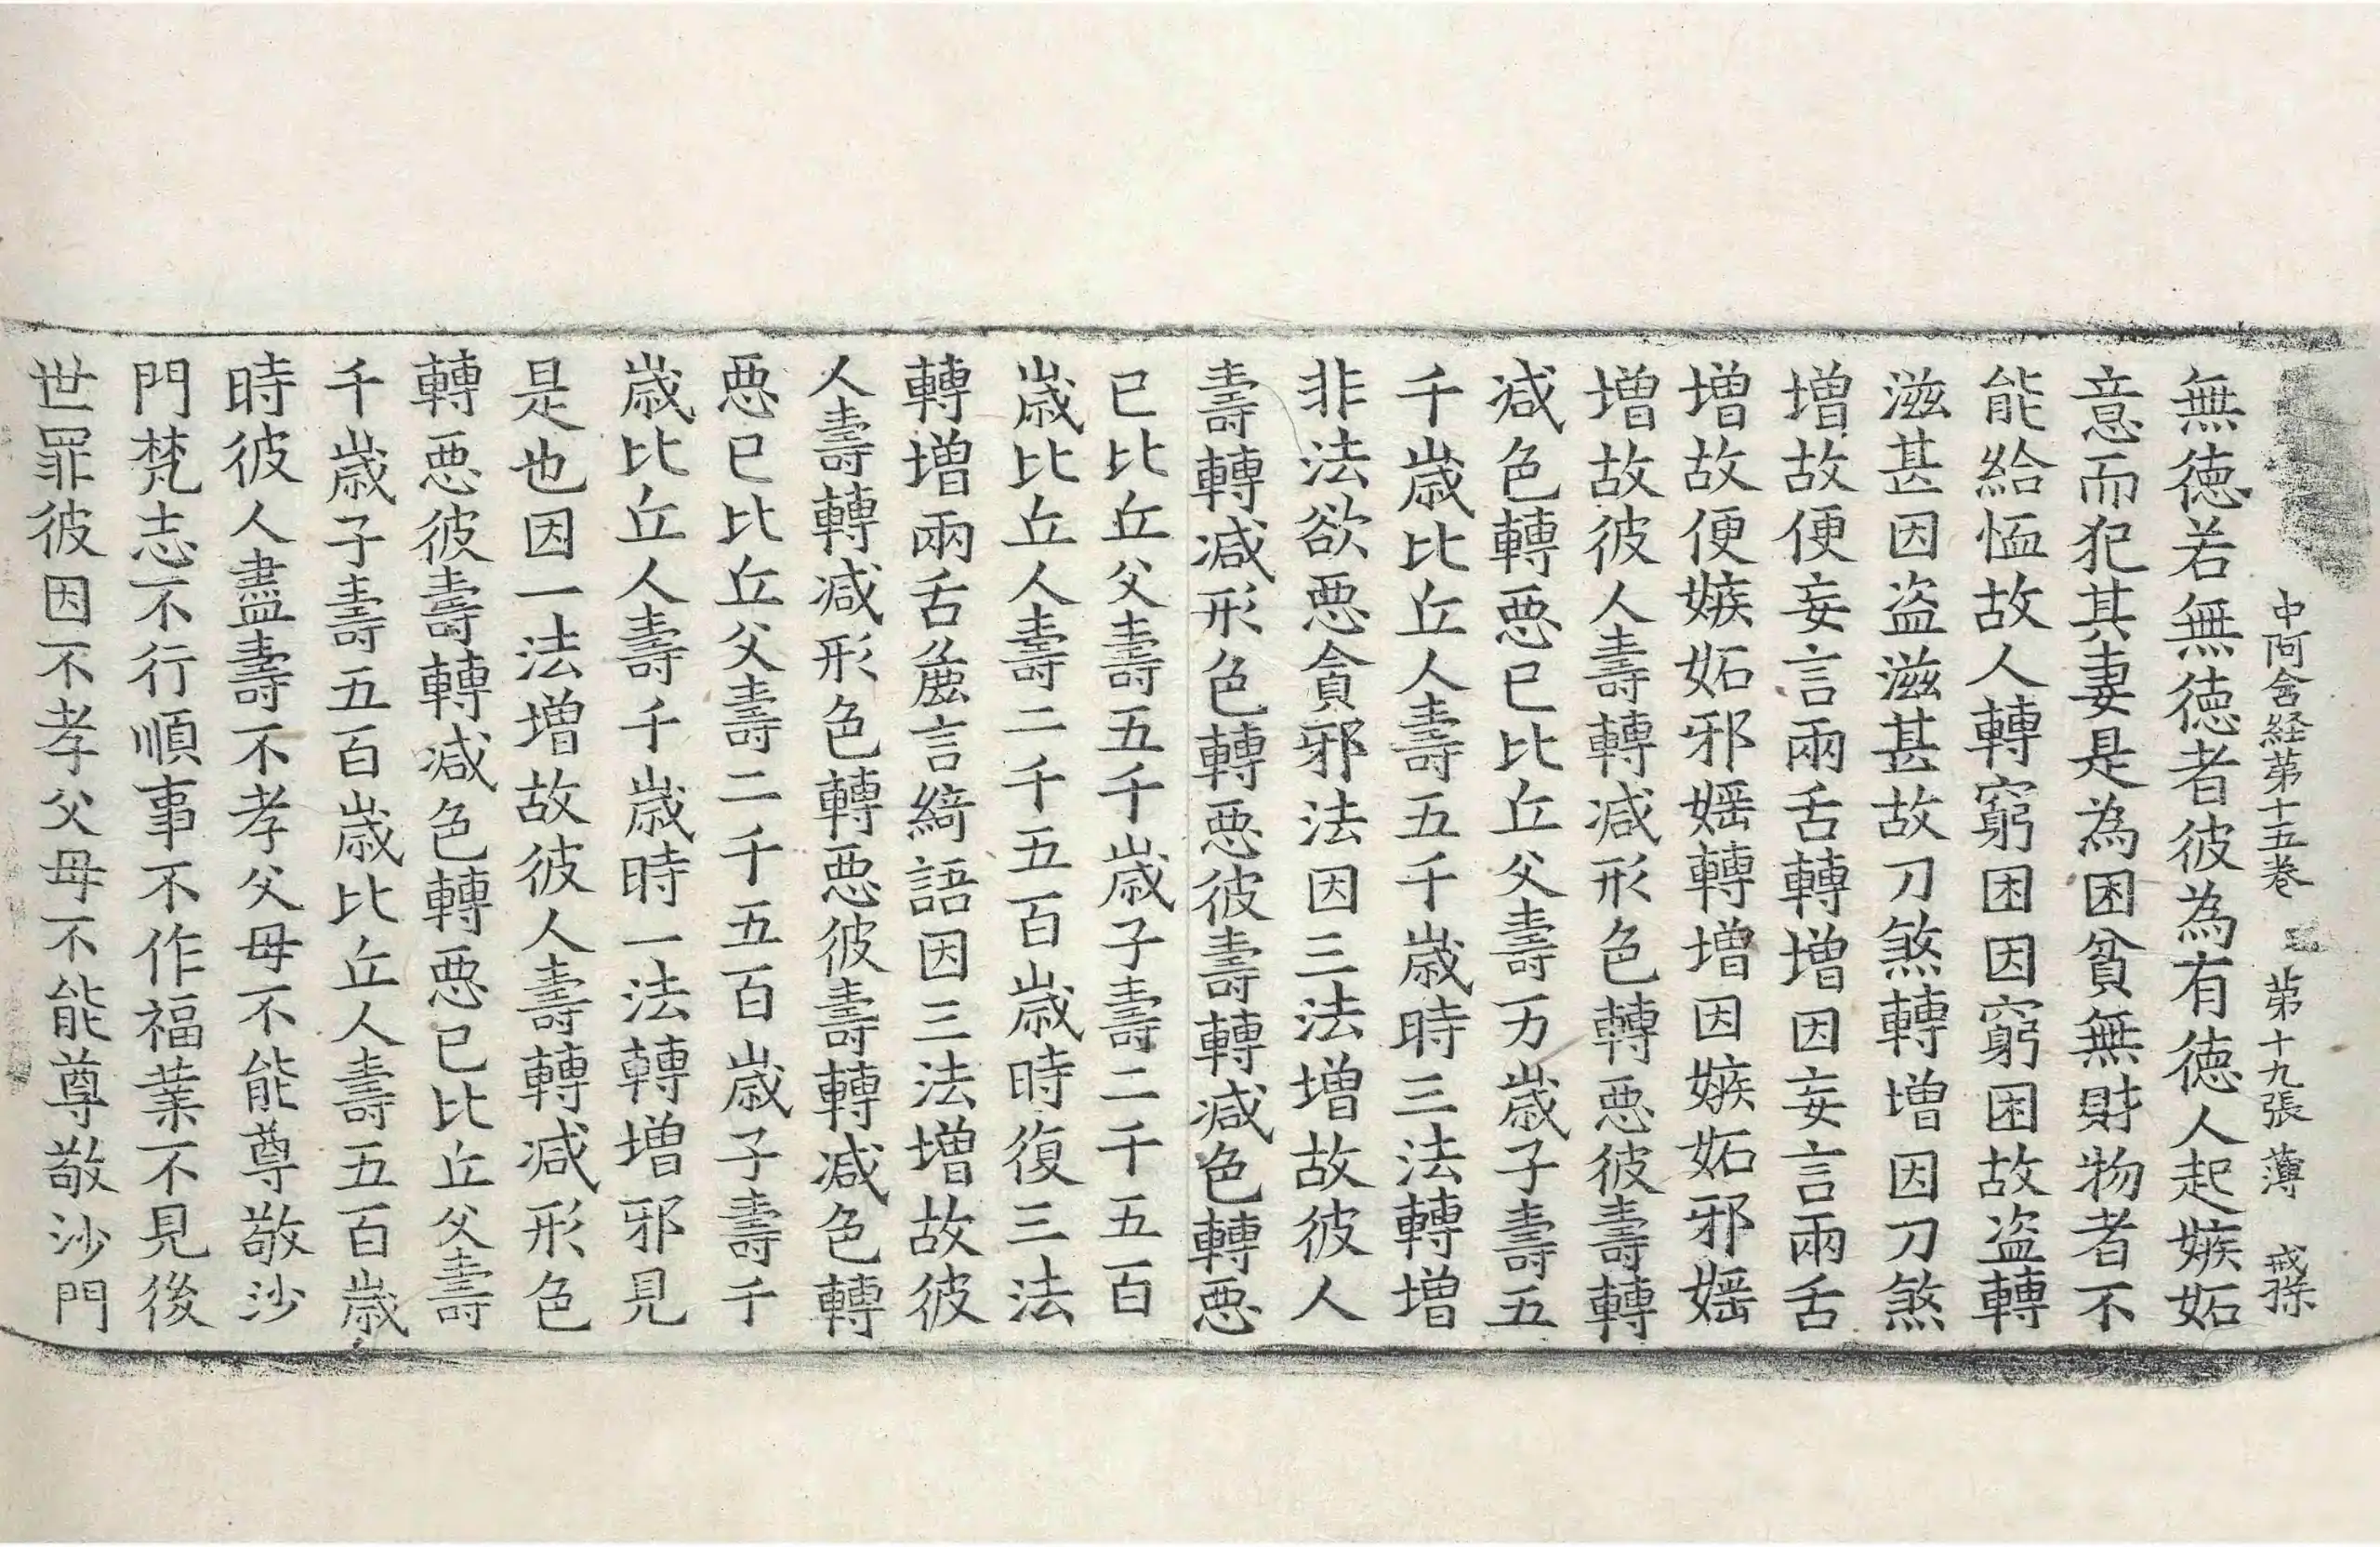 中阿含経苐十五巻 苐十九張 薄 戒孫
無徳若無徳者彼為有徳人起嫉妬
意而犯其妻是為困貧無財物者不
能給恤故人轉窮困因窮困故盗轉
滋甚因盗滋甚故刀煞轉増因刀煞
増故便妄言兩舌轉増因妄言兩舌
増故便嫉妬邪婬轉増因嫉妬邪婬
増故彼人壽轉减形色轉悪彼壽轉
减色轉悪已比丘父壽万歳子壽五
千歳比丘人壽五千歳時三法轉増
非法欲悪貪邪法因三法増故彼人
壽轉减形色轉悪彼壽轉减色轉悪
已比丘父壽五千歳子壽二千五百
歳比丘人壽二千五百歳時復三法
轉増兩舌麁言綺語因三法増故彼
人壽轉减形色轉悪彼壽轉减色轉
悪已比丘父壽二千五百歳子壽千
歳比丘人壽千歳時一法轉増邪見
是也因一法増故彼人壽轉减形色
轉悪彼壽轉减色轉悪已比丘父壽
千歳子壽五百歳比丘人壽五百歳
時彼人盡壽不孝父母不能尊敬沙
門梵志不行順事不作福業不見後
世罪彼因不孝父母不能尊敬沙門